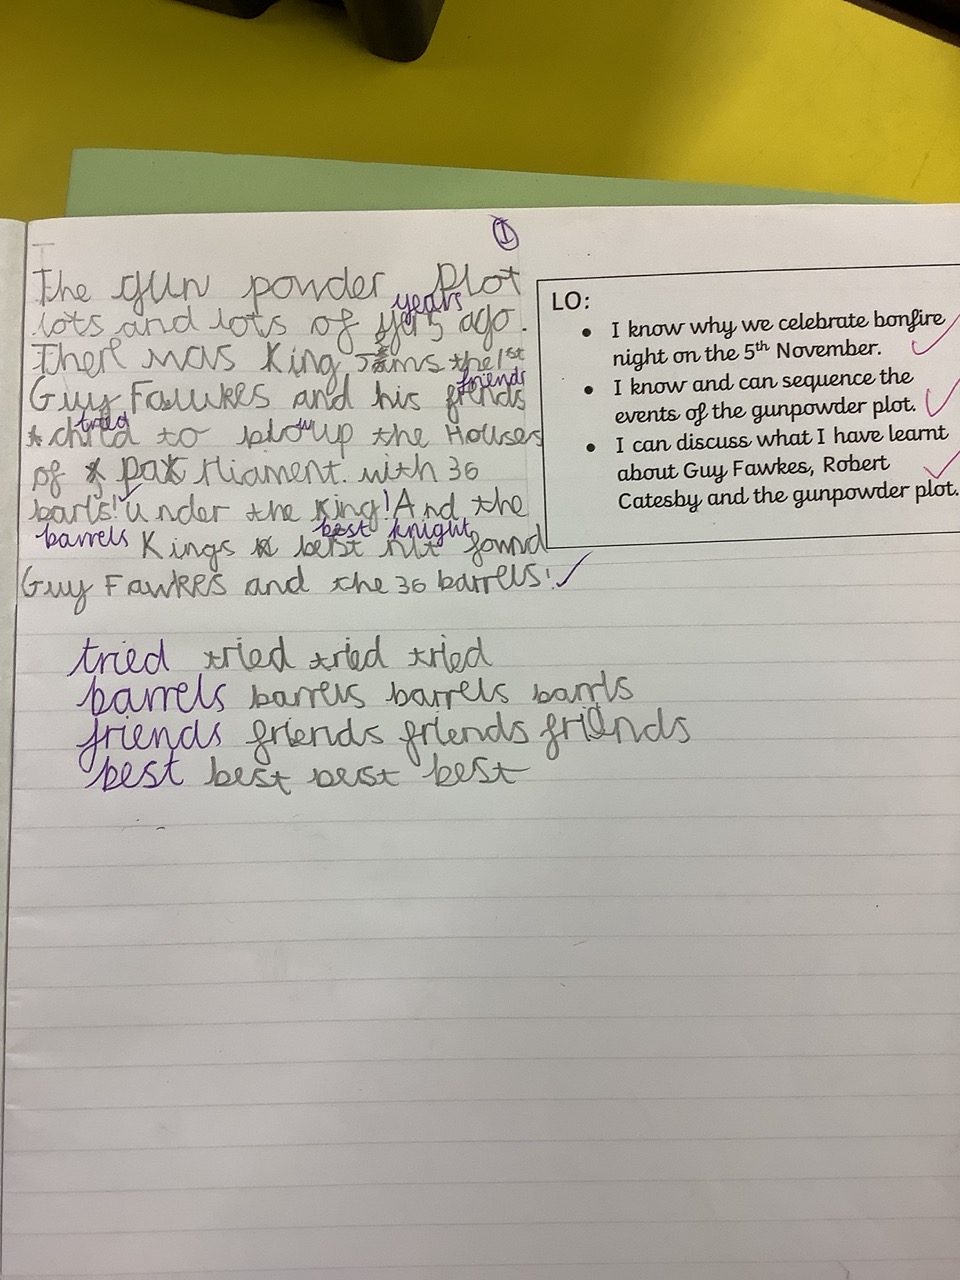 I
The gun powder Plot
years
lots and lots of yers ago.
There was King Jams the 1st
friends
Guy Fawkes and his frends
tried
chried to blow up the Houses
of parliament. with 36
barls! under the King! And the
barrels
best knight
Kings best nit found
Guy Fawkes and the 36 barrels!
tried tried tried tried
barrels barrels barrels barrls
friends friends friends friends
best best best best
LO:
• I know why we celebrate bonfire
night on the 5th November.
• I know and can sequence the
events of the gunpowder plot.
• I can discuss what I have learnt
about Guy Fawkes, Robert
Catesby and the gunpowder plot.